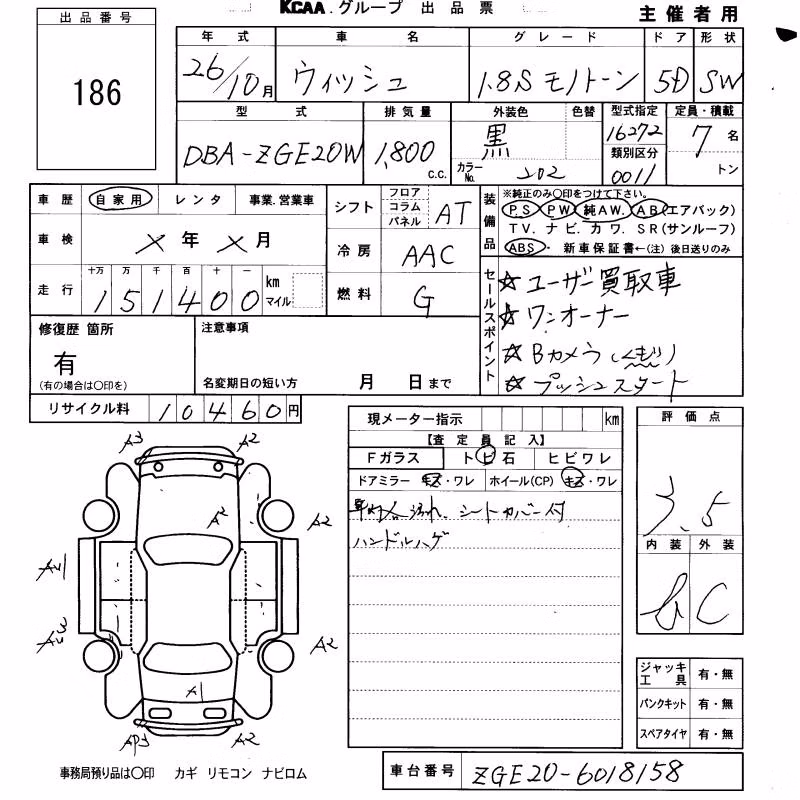 KCAA. グループ 出品票 主催者用
出品番号
186
年式 車名 グレード ドア 形状
26/10月 ウィッシュ 1.8S モノトーン 5D SW
型式 排気量 外装色 色替 型式指定 定員・積載
DBA-ZGE20W 1,800 c.c. 黒 16272 7名
カラーNo. 202 類別区分 0011 トン
車歴 自家用 レンタ 事業.営業車
シフト フロア コラム パネル AT
装備品 ※純正のみ〇印をつけて下さい。
PS PW 純AW. AB(エアバック)
TV. ナビ. カワ. SR(サンルーフ)
ABS・ 新車保証書←(注) 後日送りのみ
車検 ×年×月
冷房 AAC
走行 十万 万 千 百 十 一 km マイル
151400
燃料 G
セールスポイント
☆ユーザー買取車
☆ワンオーナー
☆Bカメラ(くもり)
☆プッシュスタート
修復歴 箇所 注意事項
有
(有の場合は〇印を) 名変期日の短い方 月 日まで
リサイクル料 10460円
現メーター指示 km
【査定員記入】
Fガラス トビ石 ヒビワレ
ドアミラー キズ・ワレ ホイール(CP) キズ・ワレ
シートカバー付
ハンドルハゲ
評価点
3.5
内装 外装
C
A3 A2
A2
A2
A2
A1
AP3 A2
ジャッキ工具 有・無
パンクキット 有・無
スペアタイヤ 有・無
事務局預り品は〇印 カギ リモコン ナビロム
車台番号 ZGE20-6018158